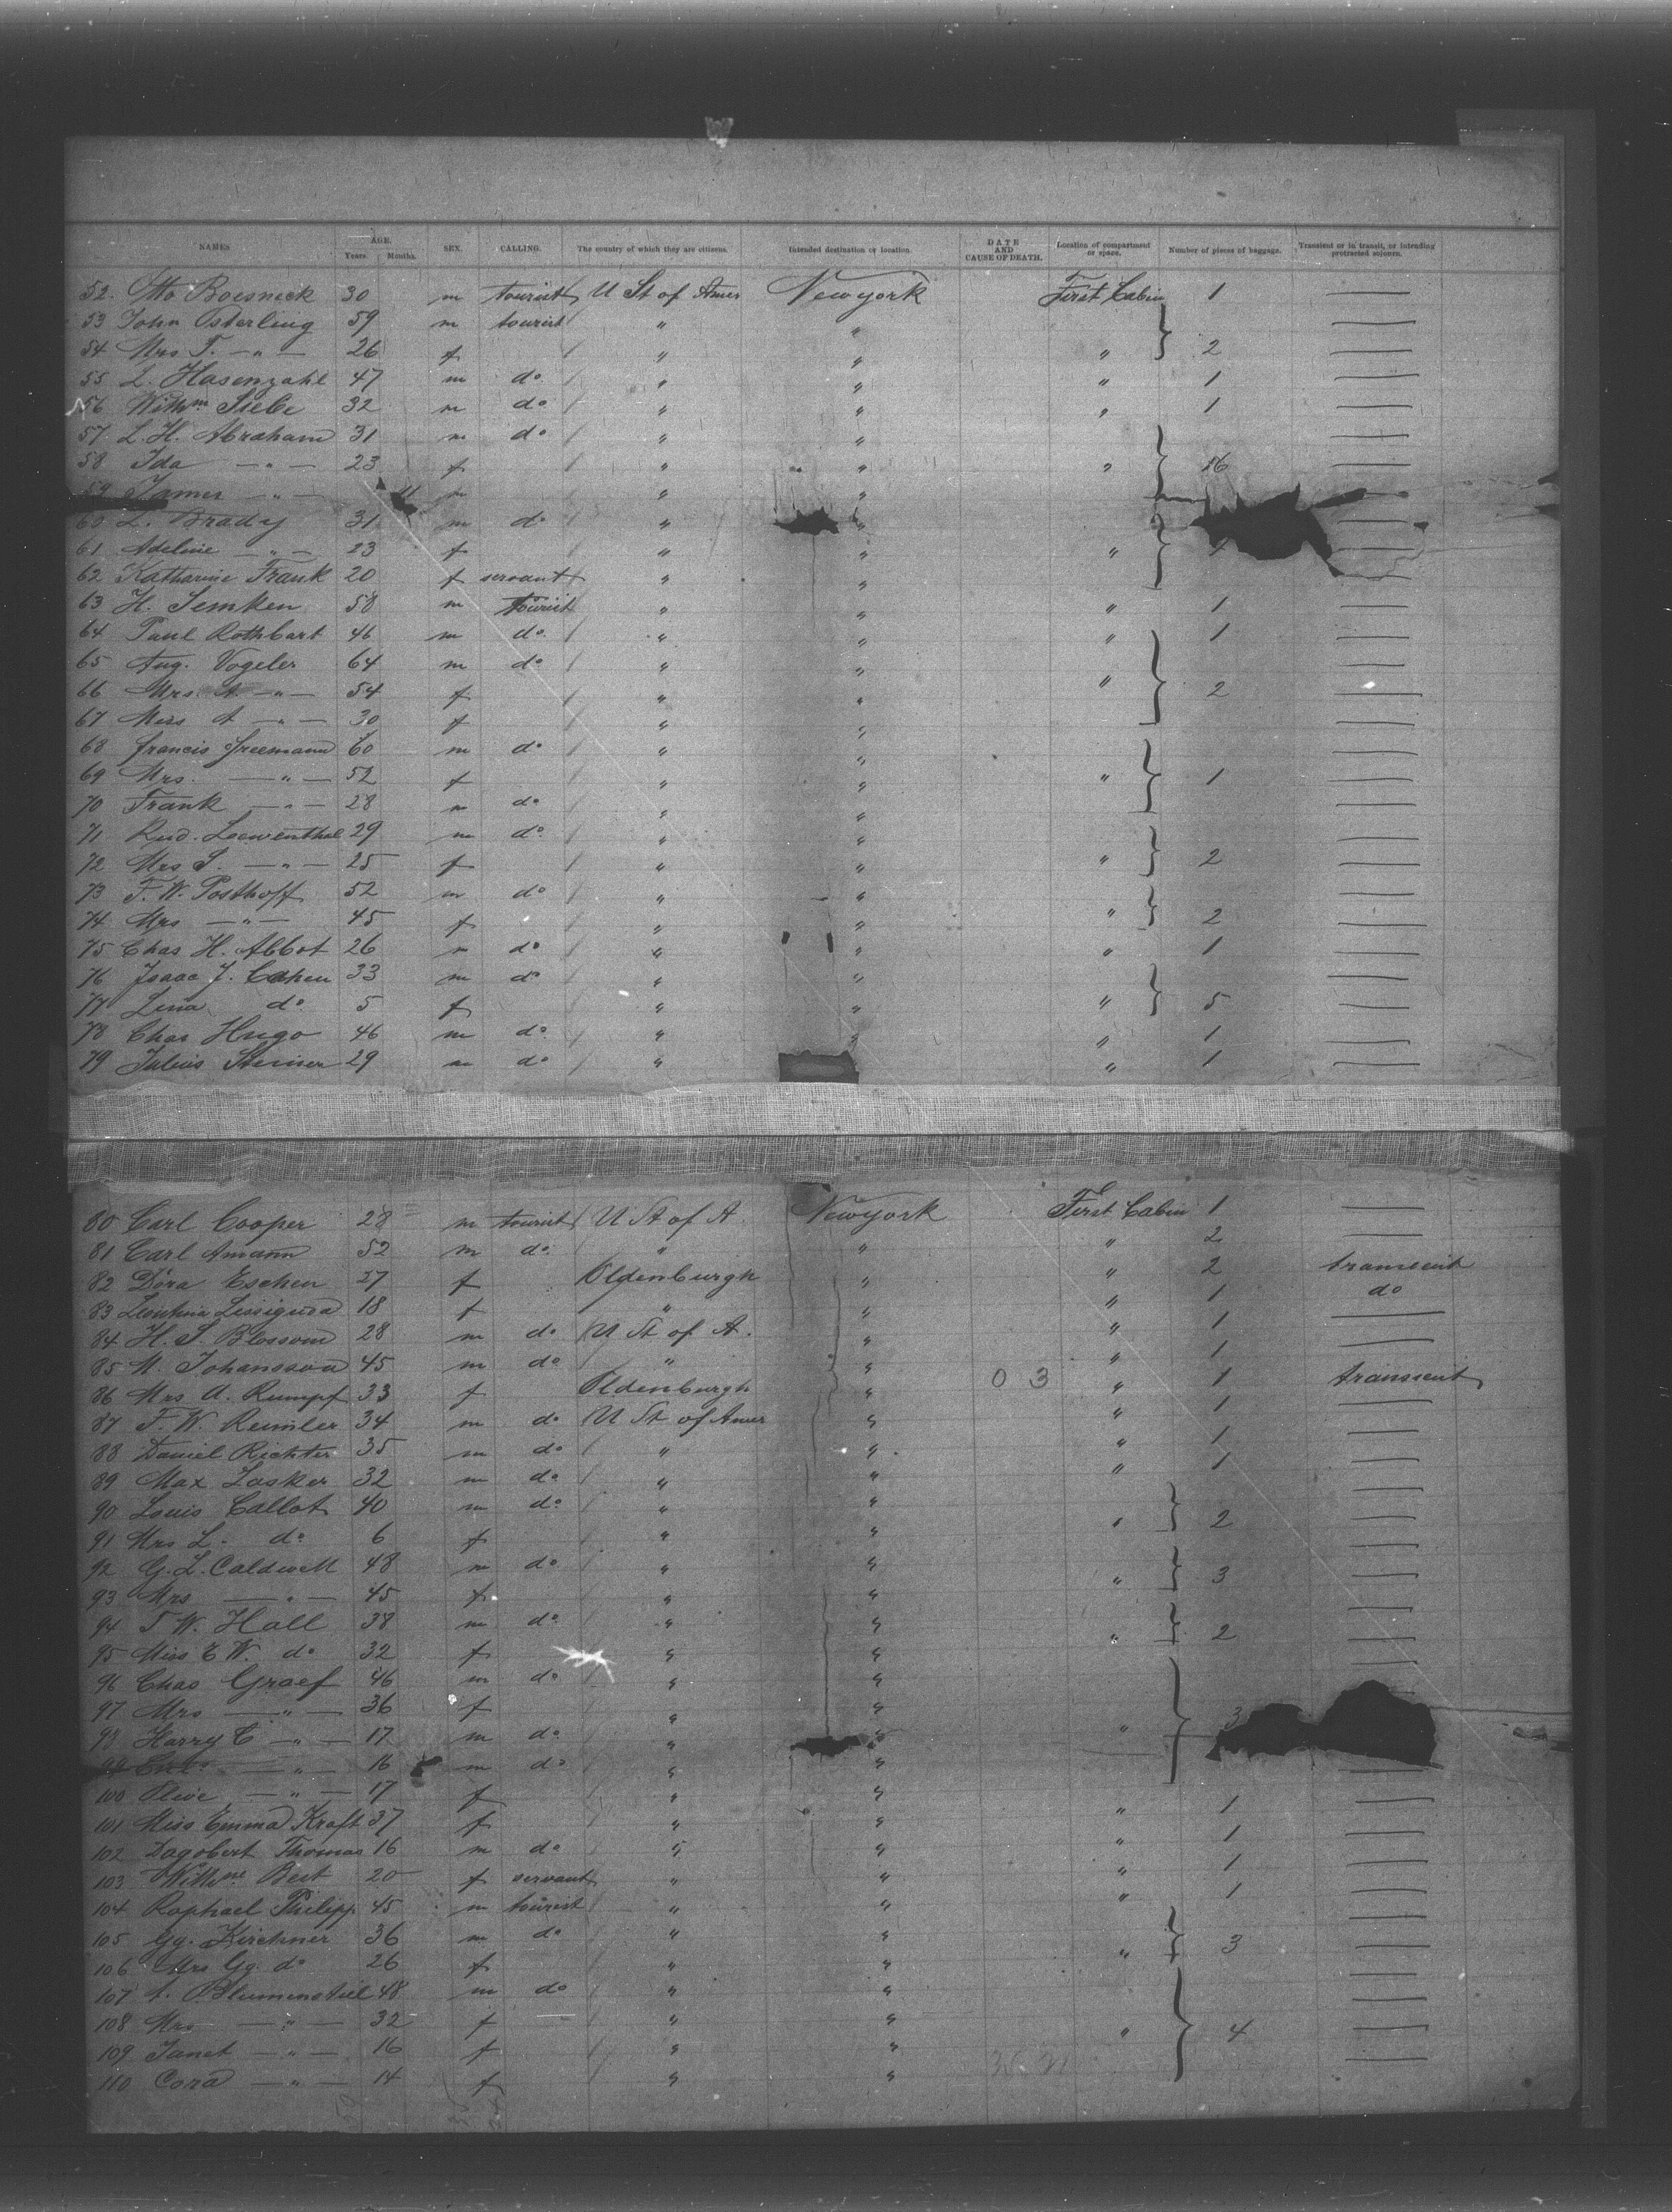 NAMES AGE. Years. Months. SEX. CALLING. The country of which they are citizens. Intended destination or location. DATE AND CAUSE OF DEATH. Location of compartment or space. Number of pieces of baggage. Transient or in transit, or intending protracted sojourn.
52. Otto Boesneck 30 m tourist U St of Amer New york First Cabin 1 —
53 John Osterling 59 m tourist " "  —
54 Mrs T. — " — 26 f " " " 2 —
55 L. Hasenzahl 47 m do " " " 1 —
56 Wilhm Siebe 32 m do " " " 1 —
57 L. H. Abraham 31 m do " " —
58 Ida — " — 23 f " " " 16 —
59 — " — 11 m " " —
60 L. Brady 31 m do " " —
61 Adeline — " — 23 f " " " —
62 Katharine Frank 20 f servant " " —
63 H. Semken 58 m tourist " " " 1 —
64 Paul Rothbart 46 m do " " " 1 —
65 Aug. Vogeler 64 m do " " —
66 Mrs. A. — " — 54 f " " " 2 —
67 A — " — 30 f " " —
68 Francis Freemann 60 m do " " —
69 Mrs. — " — 52 f " " " 1 —
70 Frank — " — 28 m do " " —
71 Rud. Loewenthal 29 m do " " —
72 Mrs S. — " — 25 f " " " 2 —
73 F. W. Posthoff 52 m do " " —
74 Mrs — " — 45 f " " " 2 —
75 Chas H. Abbot 26 m do " " " 1 —
76 Isaac J. Cahen 33 m do " " —
77 Lena do 5 f " " " 5 —
78 Chas Hugo 46 m do " " " 1 —
79 Julius Steiner 29 m do " " 1 —
80 Carl Cooper 28 m tourist U St of A. New york First Cabin 1 —
81 Carl Amann 52 m do " " " 2 —
82 Dora Eschen 27 f Oldenburgh " " 2 transient
83 18 f " " " 1 do
84 H. S. Blossom 28 m do U St of A. " " 1 —
85 Johansson 45 m do " " " 1 —
86 Mrs A. Rumpf 33 f Oldenburgh " 0 3 " 1 transient
87 F. W. Reimler 34 m do U St of Amer " " 1 —
88 Daniel Richter 35 m do " " " 1 —
89 Max Lasker 32 m do " " " 1 —
90 Louis Callot 40 m do " " —
91 Mrs L. do 6 f " " " 2 —
92 G. L. Caldwell 48 m do " " —
93 Mrs — " — 45 f " " " 3 —
94 T. W. Hall 38 m do " " —
95 Miss E W. do 32 f " " " 2 —
96 Chas Graef 46 m do " " —
97 Mrs — " — 36 f " " 3
98 Harry C — " — 17 m do " " "
99 — " — 16 m do " " —
100 Olive — " — 17 f " " —
101 Miss Emma Kraft 37 f " " " 1 —
102 Dagobert Thomas 16 m do " " " 1 —
103 Wilhme Best 20 f servant " " " 1 —
104 Raphael Philipp 45 m tourist " " " 1 —
105 Gg. Kirchner 36 m do " " —
106 Mrs Gg. do 26 f " " " 3 —
107 A. Blumenstiel 48 m do " " —
108 Mrs — " — 32 f " " —
109 Janet — " — 16 f " " " 4 —
110 Cora — " — 14 f " " —